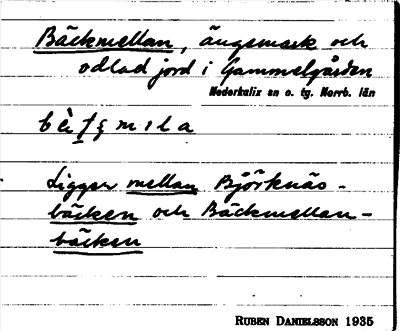 Bäckmellan, ängsmark och
odlad jord i Gammelgården
Nederkalix sn o. tg. Norrb. län
Ligger mellan Björknäs-
bäcken och Bäckmellan-
bäcken
RUBEN DANIELSSON 1935